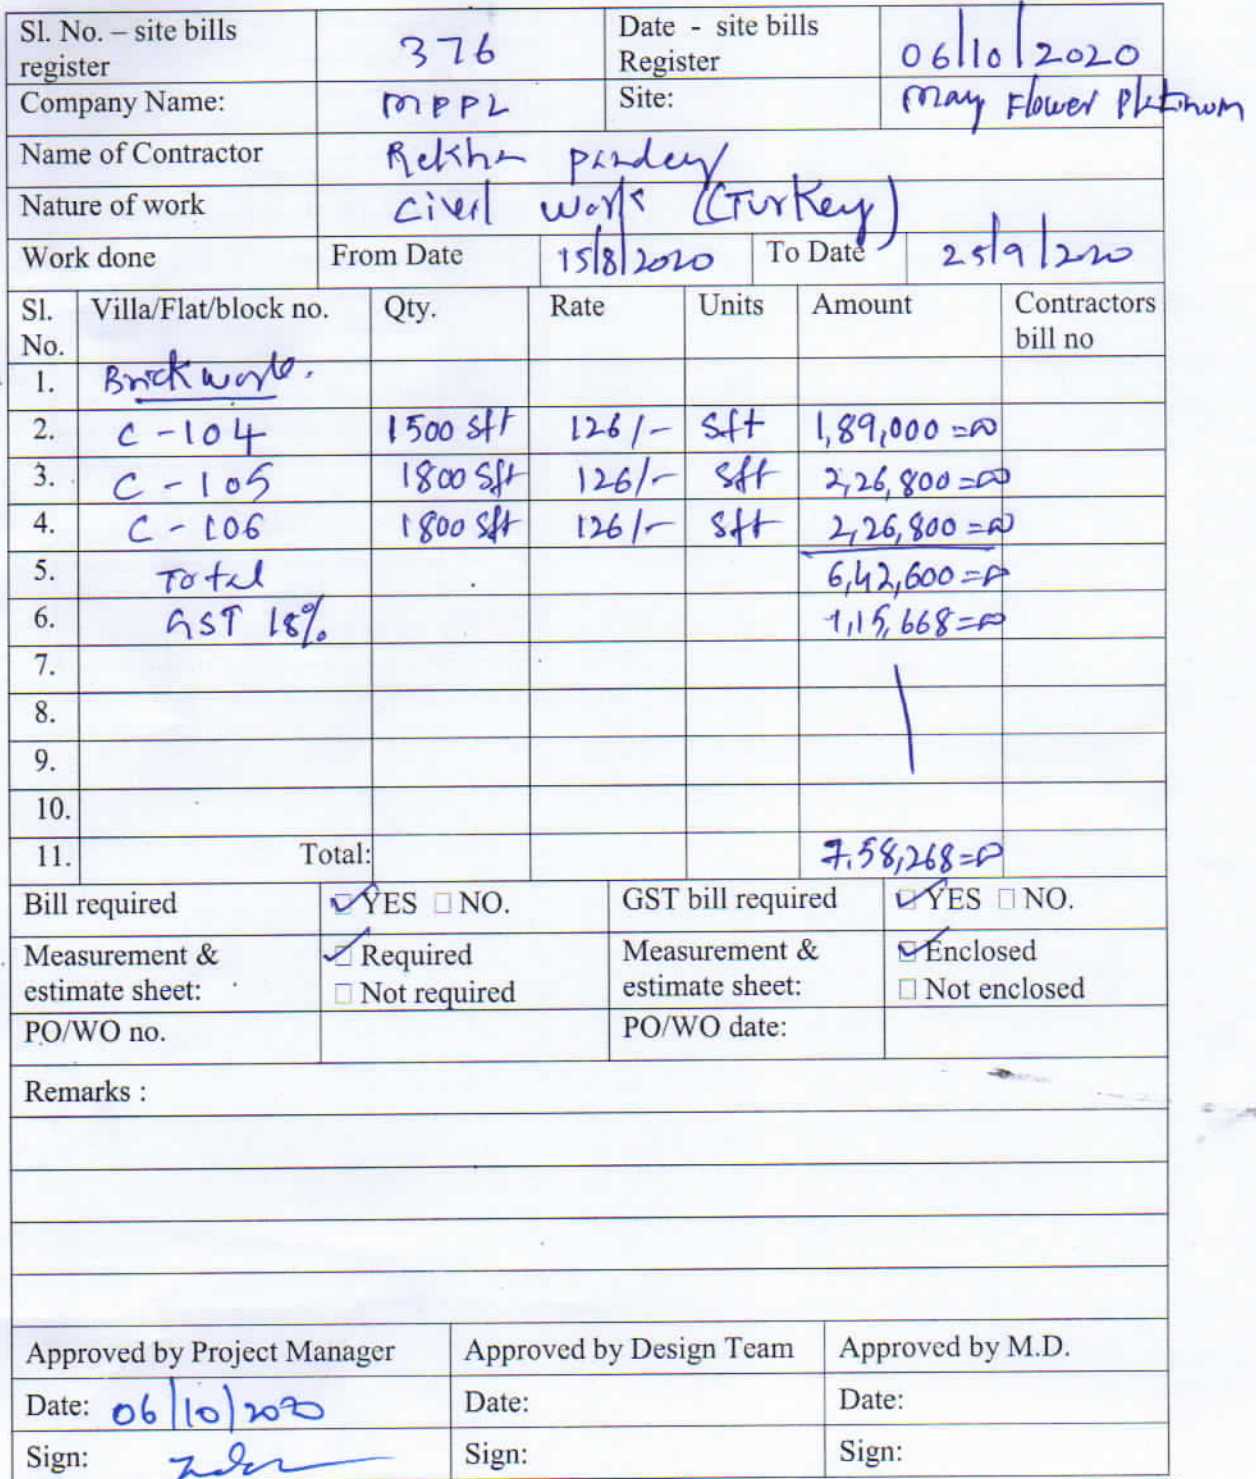 Sl. No. – site bills register 376 Date - site bills Register 06/10/2020
Company Name: MPPL Site: May Flower Platinum
Name of Contractor Rekha pandey
Nature of work Civil work (Turkey)
Work done From Date 15/8/2020 To Date 25/9/2020
Sl. No. Villa/Flat/block no. Qty. Rate Units Amount Contractors bill no
1. Brick work.
2. C-104 1500 sft 126/- sft 1,89,000=00
3. C-105 1800 sft 126/- sft 2,26,800=00
4. C-106 1800 sft 126/- sft 2,26,800=00
5. Total 6,42,600=00
6. GST 18% 1,15,668=00
7.
8.
9.
10.
11. Total: 7,58,268=00
Bill required YES NO. GST bill required YES NO.
Measurement & estimate sheet: Required Not required Measurement & estimate sheet: Enclosed Not enclosed
PO/WO no. PO/WO date:
Remarks :
Approved by Project Manager Approved by Design Team Approved by M.D.
Date: 06/10/2020 Date: Date:
Sign: Sign: Sign: